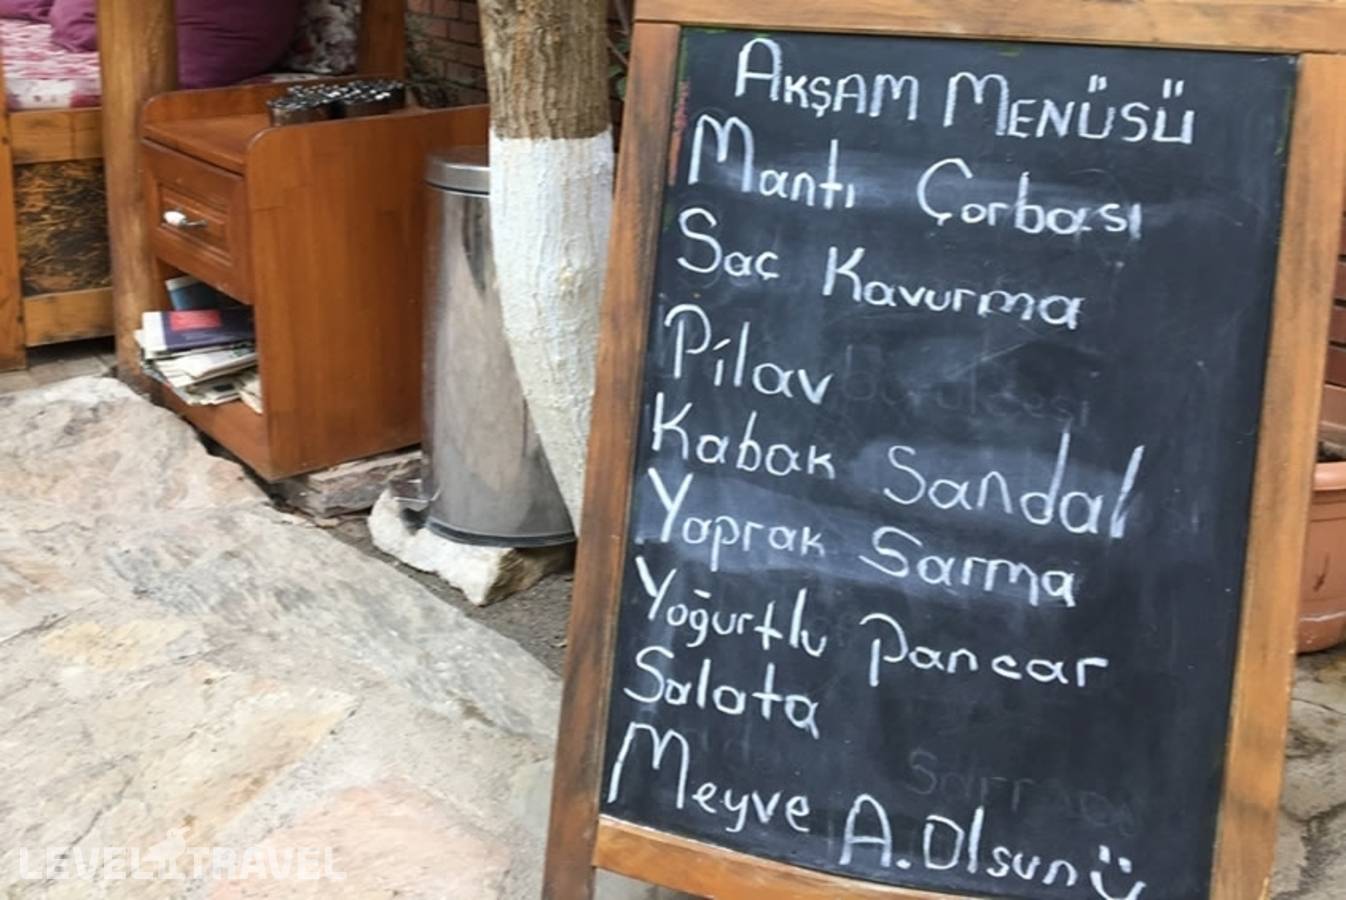 AKŞAM MENÜSÜ
Mantı Çorbası
Saç Kavurma
Pilav
Kabak Sandal
Yaprak Sarma
Yoğurtlu Pancar
Salata
Meyve A. Olsun
LEVEL TRAVEL